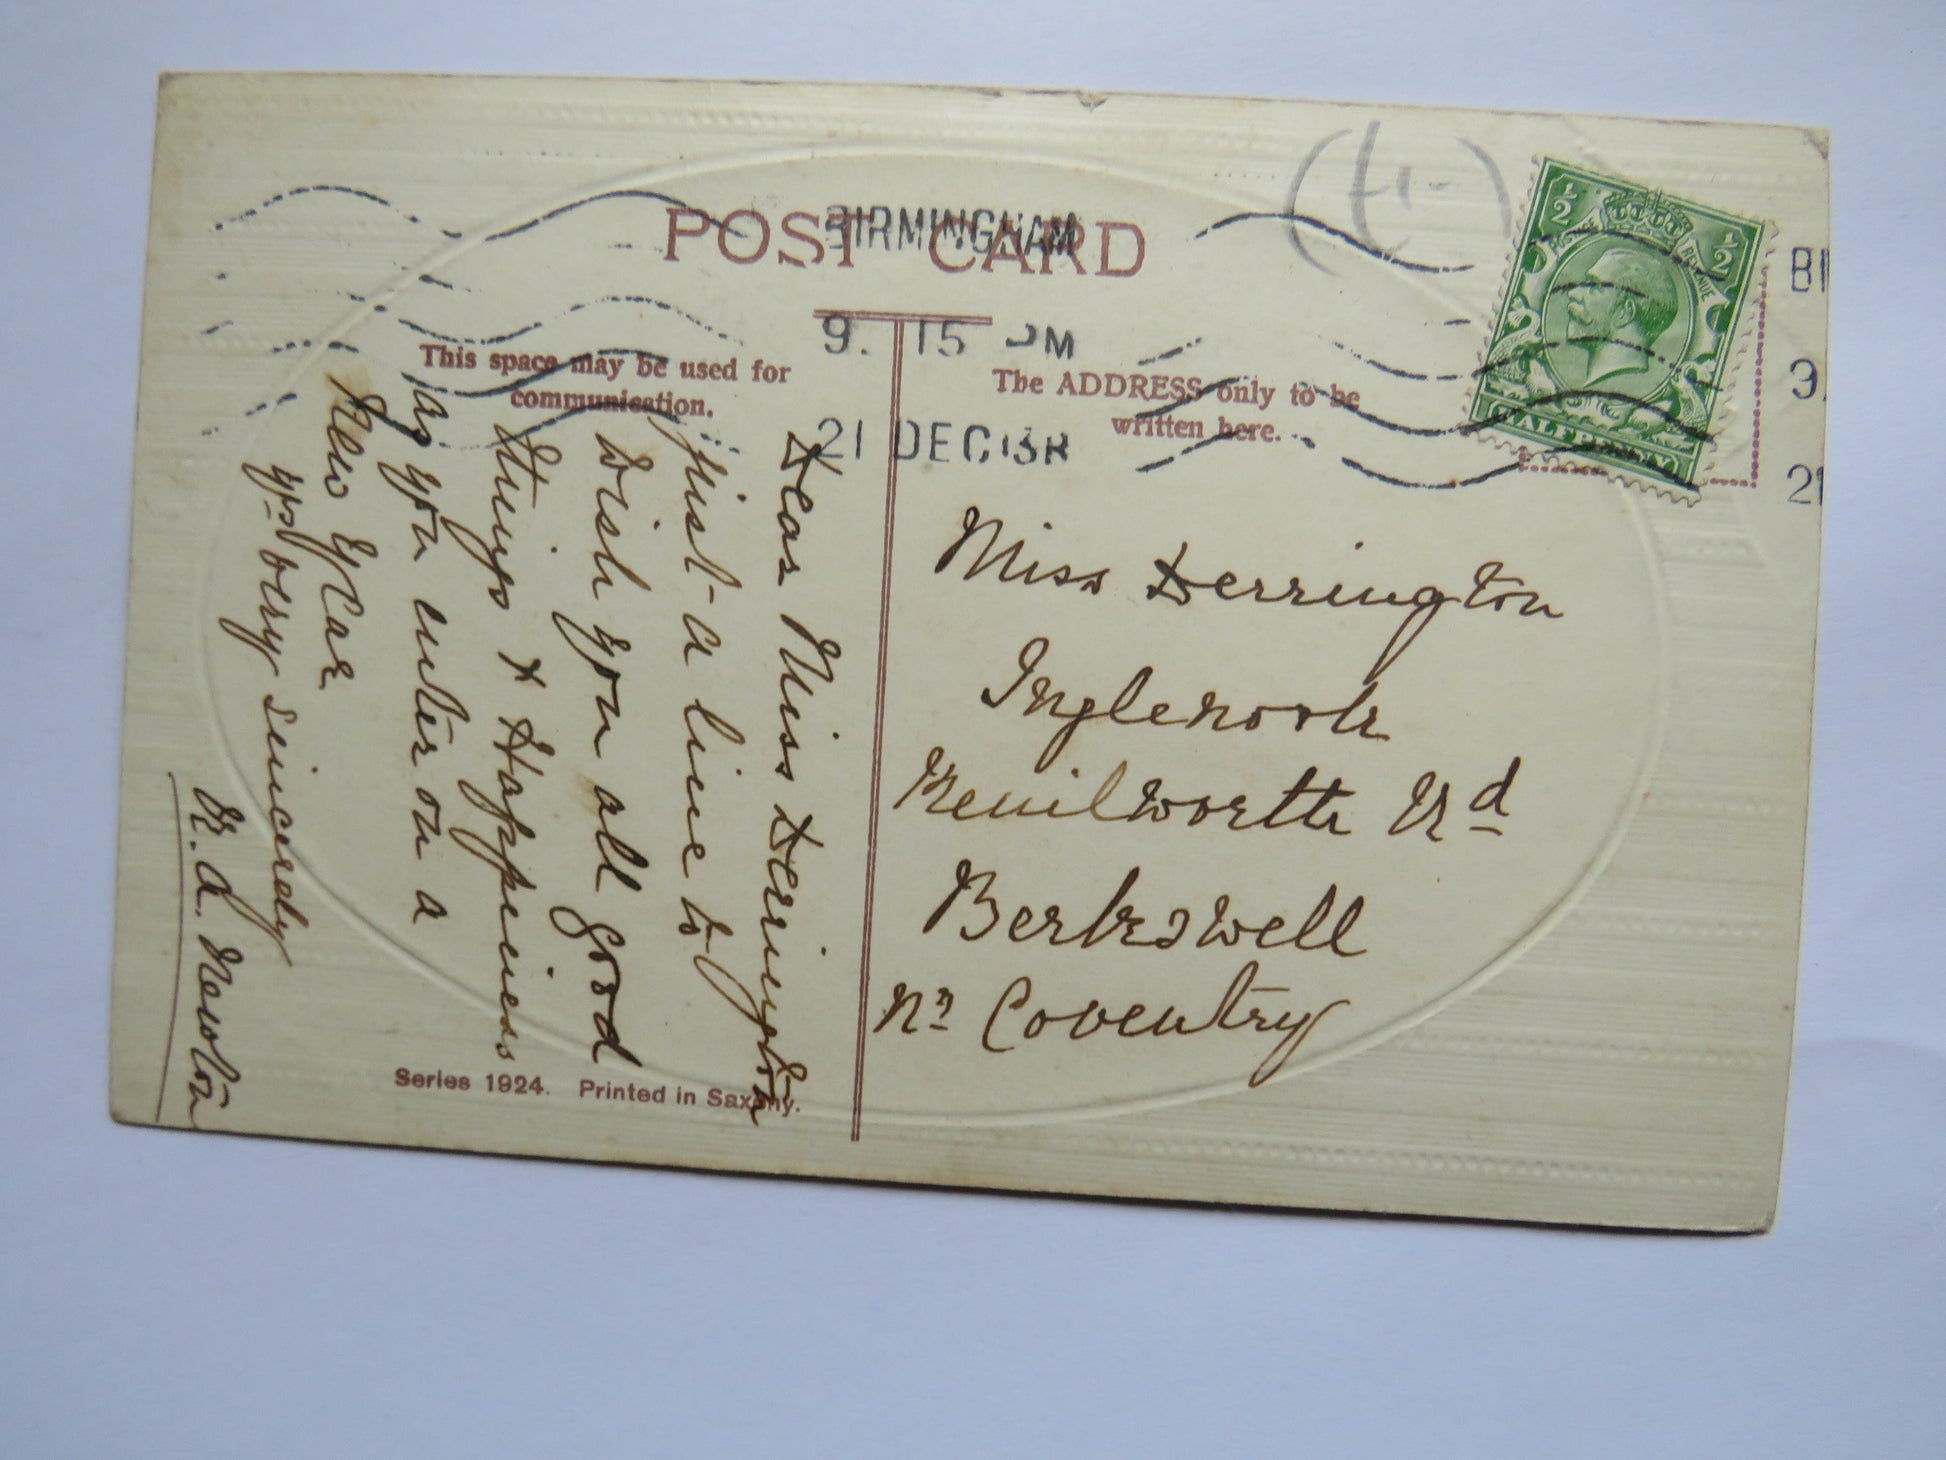 POST CARD
BIRMINGHAM
9. 15 PM
21 DEC 13
This space may be used for
communication.
The ADDRESS only to be
written here.
½ ½
POSTAGE REVENUE
HALFPENNY
BI
9.
21
Dear Miss Derrington
Just a line to
wish you all good
things & Happiness
as you enter on a
New Year
yrs very sincerely
A. Newton
Miss Derrington
Inglenook
Kenilworth Rd
Berkswell
Nr Coventry
Series 1924. Printed in Saxony.